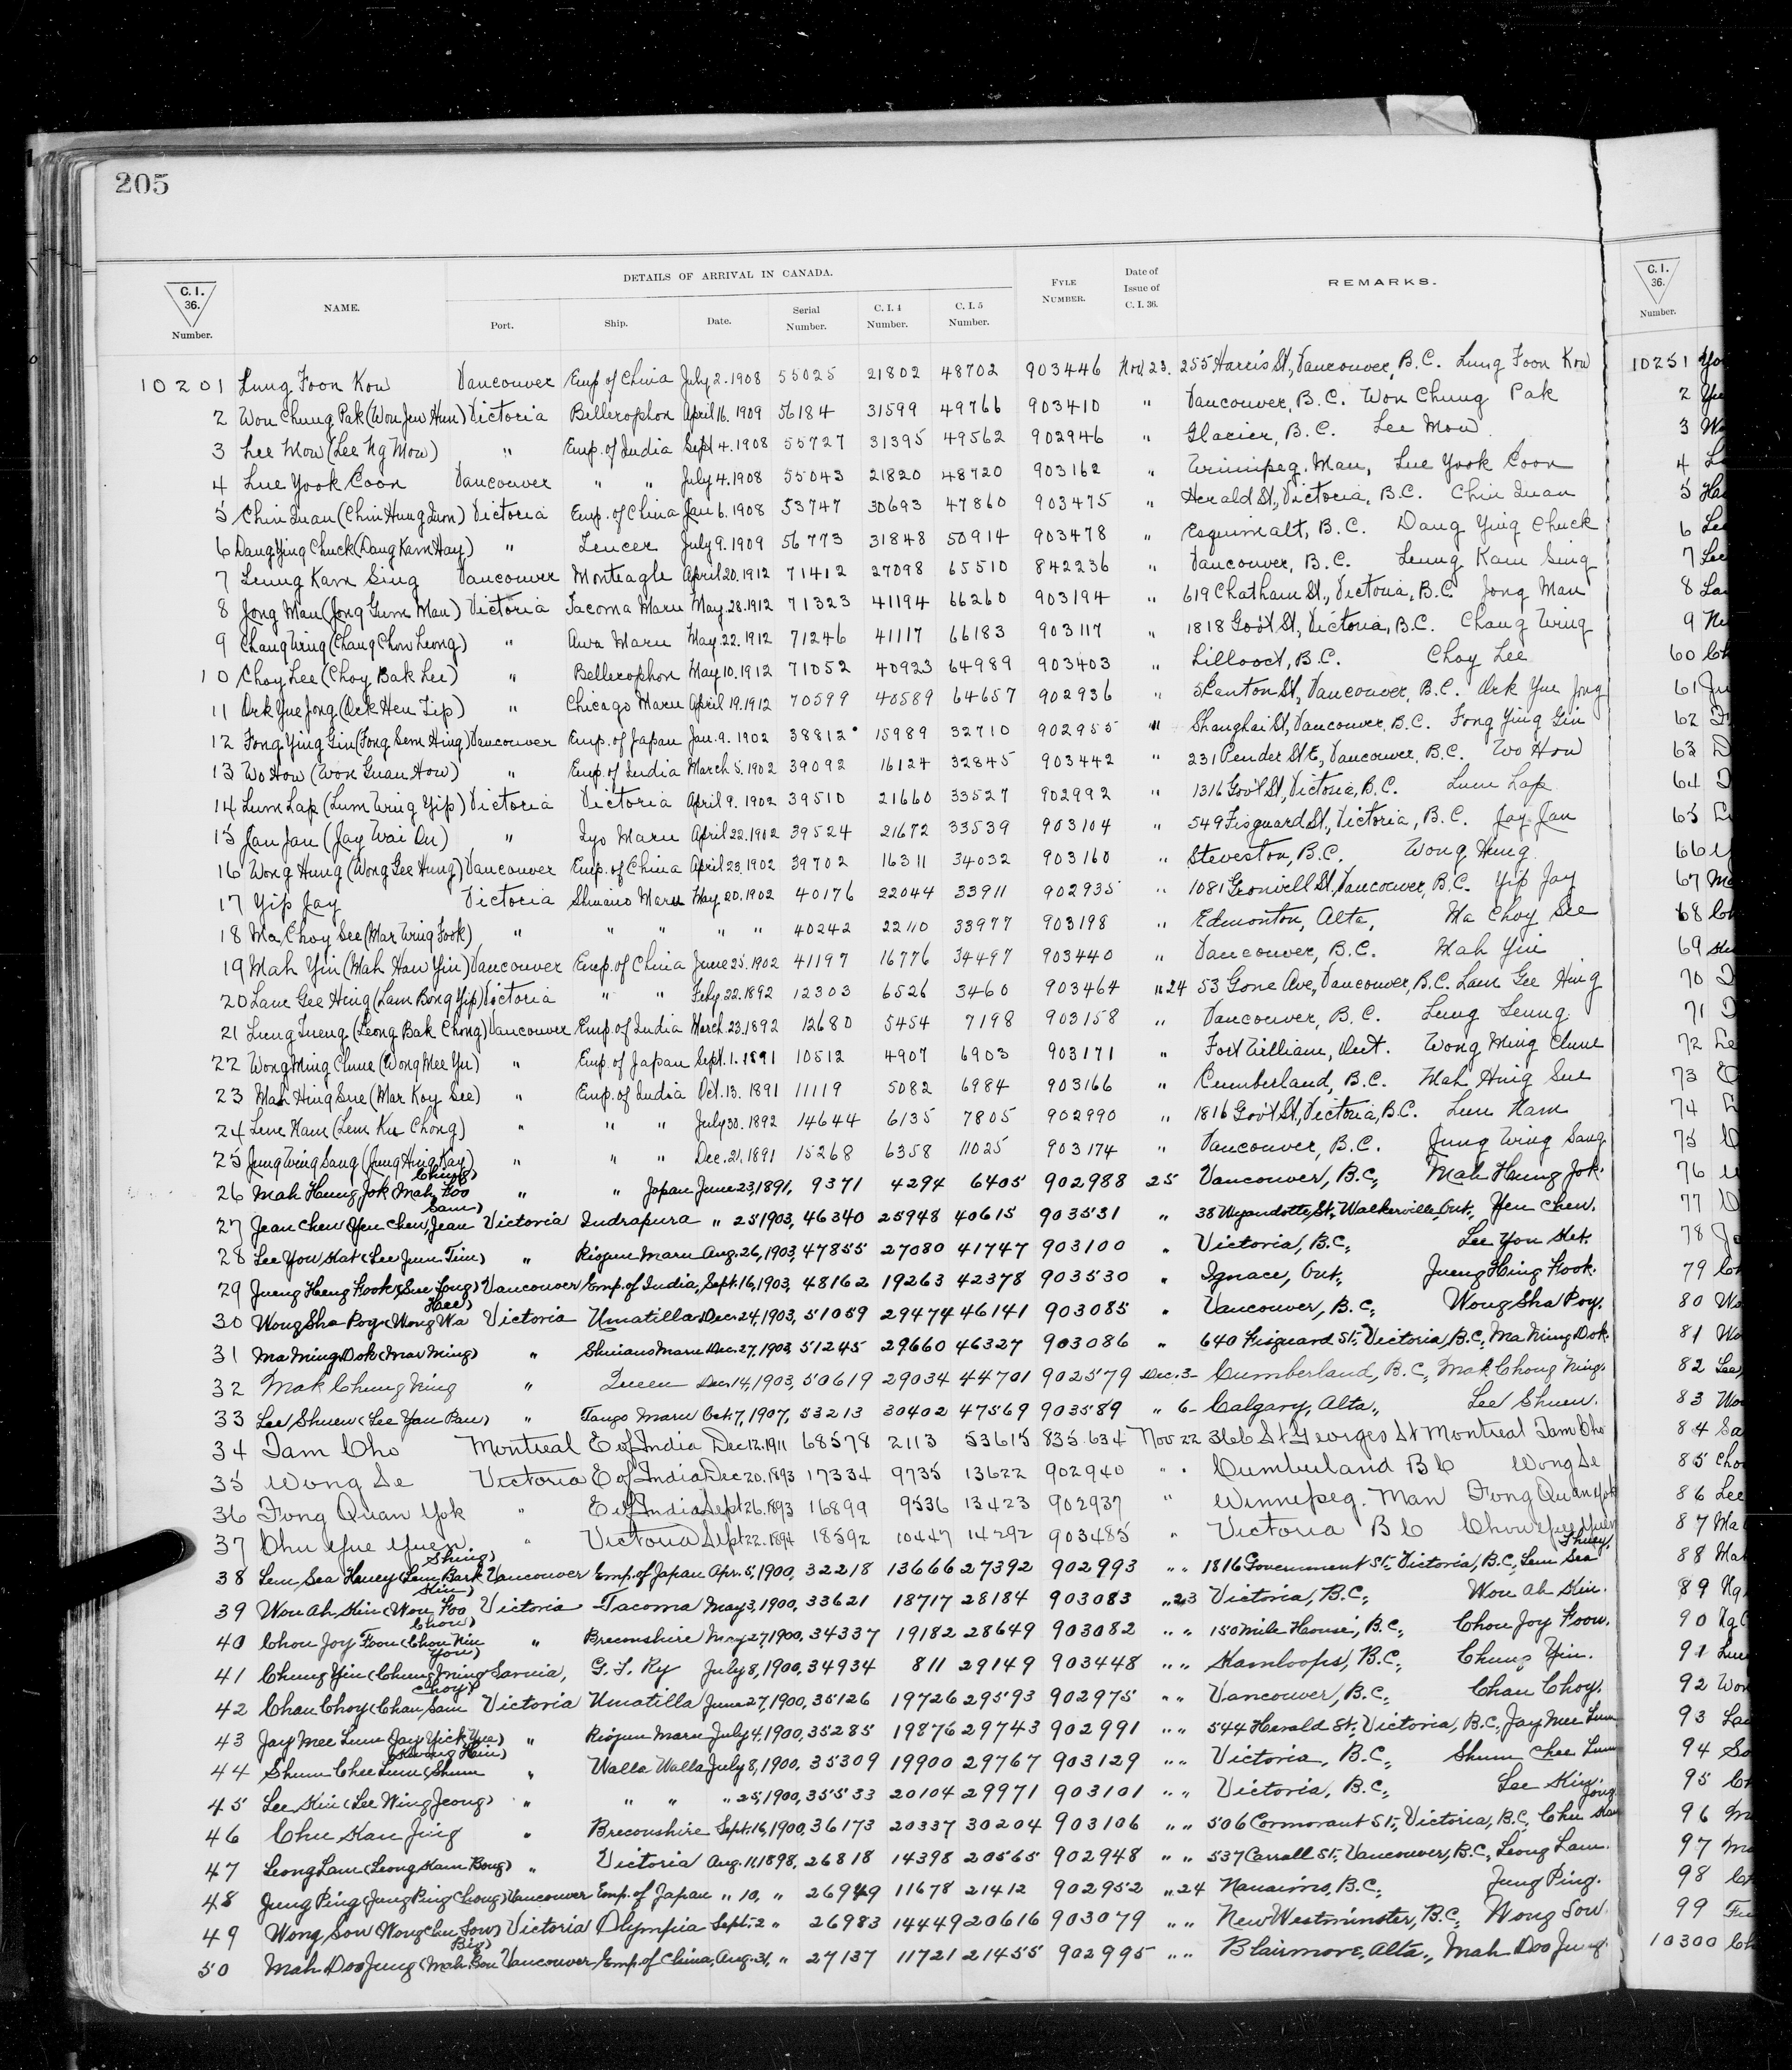 205
DETAILS OF ARRIVAL IN CANADA.
C. I. 36. Number. NAME. Port. Ship. Date. Serial Number. C. I. 4 Number. C. I. 5 Number. FYLE NUMBER. Date of Issue of C. I. 36. REMARKS. C. I. 36. Number.
10201 Lung Foon Kow Vancouver Emp. of China July 2. 1908 55025 21802 48702 903446 Nov 23. 255 Harris St., Vancouver, B.C. Lung Foon Kow 10251
2 Won Chung Pak (Won Jew Hun) Victoria Bellerophon April 16. 1909 56184 31599 49766 903410 " Vancouver, B.C. Won Chung Pak 2
3 Lee Mow (Lee Ng Mow) " Emp. of India Sept 4. 1908 55727 31395 49562 902946 " Glacier, B.C. Lee Mow 3
4 Lue Yook Coon Vancouver " " July 4. 1908 55043 21820 48720 903162 " Winnipeg. Man, Lue Yook Coon 4
5 Chin Quan (Chin Hung Quon) Victoria Emp. of China Jan 6. 1908 53747 30693 47860 903475 " Herald St., Victoria, B.C. Chin Quan 5
6 Dang Ying Chuck (Dang Kam Hay) " Teucer July 9. 1909 56773 31848 50914 903478 " Esquimalt, B.C. Dang Ying Chuck 6
7 Leung Kam Sing Vancouver Monteagle April 20. 1912 71412 27098 65510 842236 " Vancouver, B.C. Leung Kam Sing 7
8 Jong Man (Jong Gum Man) Victoria Tacoma Maru May. 28. 1912 71323 41194 66260 903194 " 619 Chatham St., Victoria, B.C. Jong Man 8
9 Chang Wing (Chang Chow Leong) " Awa Maru May. 22. 1912 71246 41117 66183 903117 " 1818 Gov't St, Victoria, B.C. Chang Wing 9
10 Choy Lee (Choy Bak Lee) " Bellerophon May. 10. 1912 71052 40923 64989 903403 " Lillooet, B.C. Choy Lee 60
11 Ork Yue Jong (Ork Hen Yip) " Chicago Maru April 19. 1912 70599 40589 64657 902936 " 5 Canton St., Vancouver, B.C. Ork Yue Jong 61
12 Fong Ying Gin (Fong Sem Hing) Vancouver Emp. of Japan Jan. 9. 1902 38812 15989 32710 902955 " Shanghai St, Vancouver, B.C. Fong Ying Gin 62
13 Wo How (Won Guan How) " Emp. of India March 5. 1902 39092 16124 32845 903442 " 231 Pender St E, Vancouver, B.C. Wo How 63
14 Lum Lap (Lum Wing Yip) Victoria Victoria April 9. 1902 39510 21660 33527 902992 " 1316 Gov't St, Victoria, B.C. Lum Lap 64
15 Jan Jan (Jay Wai On) " Iyo Maru April 22. 1902 39524 21672 33539 903104 " 549 Fisguard St., Victoria, B.C. Jay Jan 65
16 Wong Hung (Wong Gee Hung) Vancouver Emp. of China April 23. 1902 39702 16311 34032 903160 " Steveston, B.C. Wong Hung 66
17 Yip Jay Victoria Shinano Maru May. 20. 1902 40176 22044 33911 902935 " 1081 Granvill St, Vancouver, B.C. Yip Jay 67
18 Ma Choy See (Mar Wing Fook) " " " " " 40242 22110 33977 903198 " Edmonton, Alta, Ma Choy See 68
19 Mah Yin (Mah Haw Yin) Vancouver Emp. of China June 25. 1902 41197 16776 34497 903440 " Vancouver, B.C. Mah Yin 69
20 Lam Gee Hing (Lam Bong Yip) Victoria " " Feby. 22. 1892 12303 6526 3460 903464 " 24 53 Gore Ave, Vancouver, B.C. Lam Gee Hing 70
21 Lung Lueng (Leong Bak Chong) Vancouver Emp. of India March. 23. 1892 12680 5454 7198 903158 " Vancouver, B.C. Lung Leung 71
22 Wong Ming Chune (Wong Mee Yu) " Emp of Japan Sept. 1. 1891 10512 4907 6903 903171 " Fort William, Ont. Wong Ming Chune 72
23 Mah Hing Sue (Mar Koy See) " Emp. of India Oct. 13. 1891 11119 5082 6984 903166 " Cumberland, B.C. Mah Hing Sue 73
24 Lem Ham (Lem Ku Chong) " " " July 30. 1892 14644 6135 7805 902990 " 1816 Gov't St, Victoria, B.C. Lem Ham 74
25 Jung Wing Sang (Jung Hing Kay) " " " Dec. 21. 1891 15268 6358 11025 903174 " Vancouver, B.C. Jung Wing Sang 75
26 Mah Heung Jok (Mah Foo Ching) " " Japan June 23, 1891, 9371 4294 6405 902988 25 Vancouver, B.C., Mah Heung Jok. 76
27 Jean Chew (Yen Chew, Jean Sam) Victoria Indrapura " 25, 1903, 46340 25948 40615 903531 " 38 Wyandotte, St., Walkerville, Ont., Yen Chew. 77
28 Lee You Kat (Lee Juen Tim) " Riojun Maru Aug. 26, 1903, 47855 27080 41747 903100 " Victoria, B.C., Lee You Ket. 78
29 Jueng Heng Hook (Sue Fong) Vancouver Emp. of India, Sept. 16, 1903, 48162 19263 42378 903530 " Ignace, Ont., Jueng Hing Hook. 79
30 Wong Sha Poy (Wong Wa Hee) Victoria Umatilla Dec. 24, 1903, 51059 29474 46141 903085 " Vancouver, B.C., Wong Sha Poy. 80
31 Ma Ning Dok (Mar Ning) " Shinano Maru Dec. 27, 1903, 51245 29660 46327 903086 " 640 Fisguard St., Victoria, B.C., Ma Ning Dok. 81
32 Mak Chung Ning " Queen Dec. 14, 1903, 50619 29034 44701 902579 Dec. 3- Cumberland, B.C., Mak Chong Ning. 82
33 Lee Shuen (Lee Yan Pan) " Tango Maru Oct. 7, 1907, 53213 30402 47569 903589 " 6- Calgary, Alta., Lee Shuen. 83
34 Tam Cho Montreal E of India Dec 12. 1911 68578 2113 53615 835634 Nov 22 366 St Georges St Montreal Tam Cho 84
35 Wong Se Victoria E of India Dec 20. 1893 17334 9735 13622 902940 " " Cumberland B C Wong Se 85
36 Fong Quan Yok " E of India Sept 26. 1893 16899 9536 13423 902937 " Winnepeg. Man Fong Quan Yok 86
37 Chu Yue Yuen " Victoria Sept 22. 1894 18592 10447 14292 903485 " Victoria B C Chow Yue Yuen 87
38 Lem Sea Heuey (Lem Bark Shing) Vancouver Emp. of Japan Apr. 5, 1900, 32218 13666 27392 902993 " " 1816 Government St., Victoria, B.C., Lem Sea 88
39 Wou Ah Kin (Wou Foo Kin) Victoria Tacoma May 3, 1900, 33621 18717 28184 903083 " 23 Victoria, B.C., Wou Ah Kin. 89
40 Chou Joy Foon (Chou Nin Chow) " Breconshire May 27, 1900, 34337 19182 28649 903082 " " 150 Mile House, B.C., Chou Joy Foon. 90
41 Chung Yin (Chung Ming You) Sarnia, G. T. Ry July 8, 1900, 34934 811 29149 903448 " " Kamloops, B.C., Chung Yin. 91
42 Chan Choy (Chan Sam Choy) Victoria Umatilla June 27, 1900, 35126 19726 29593 902975 " " Vancouver, B.C., Chan Choy. 92
43 Jay Mee Lum (Jay Yick Yue) " Riojun Maru July 4, 1900, 35285 19876 29743 902991 " " 544 Herald St., Victoria, B.C., Jay Mee Lum 93
44 Shum Chee Lum (Shum Kwong Hin) " Walla Walla July 8, 1900, 35309 19900 29767 903129 " " Victoria, B.C., Shum Chee Lum 94
45 Lee Kin (Lee Wing Jeong) " " " " 25, 1900, 35533 20104 29971 903101 " " Victoria, B.C., Lee Kin. 95
46 Chu Kan Jing " Breconshire Sept. 16, 1900, 36173 20337 30204 903106 " " 506 Cormorant St., Victoria, B.C., Chu Kan Jong 96
47 Leong Lam (Leong Kam Bong) " Victoria Aug. 11, 1898, 26818 14398 20565 902948 " " 537 Carrall St., Vancouver, B.C., Leong Lam. 97
48 Jung Ping (Jung Bing Chong) Vancouver Emp. of Japan " 10, " 26949 11678 21412 902952 " 24 Nanaimo, B.C., Jung Ping. 98
49 Wong Sow (Wong Chu Sow) Victoria Olympia Sept. 2 " 26983 14449 20616 903079 " " New Westminster, B.C., Wong Sow. 99
50 Mah Doo Jung (Mah Bou Big) Vancouver Emp. of China, Aug. 31, " 27137 11721 21455 902995 " " Blairmore, Alta., Mah Doo Jung. 10300